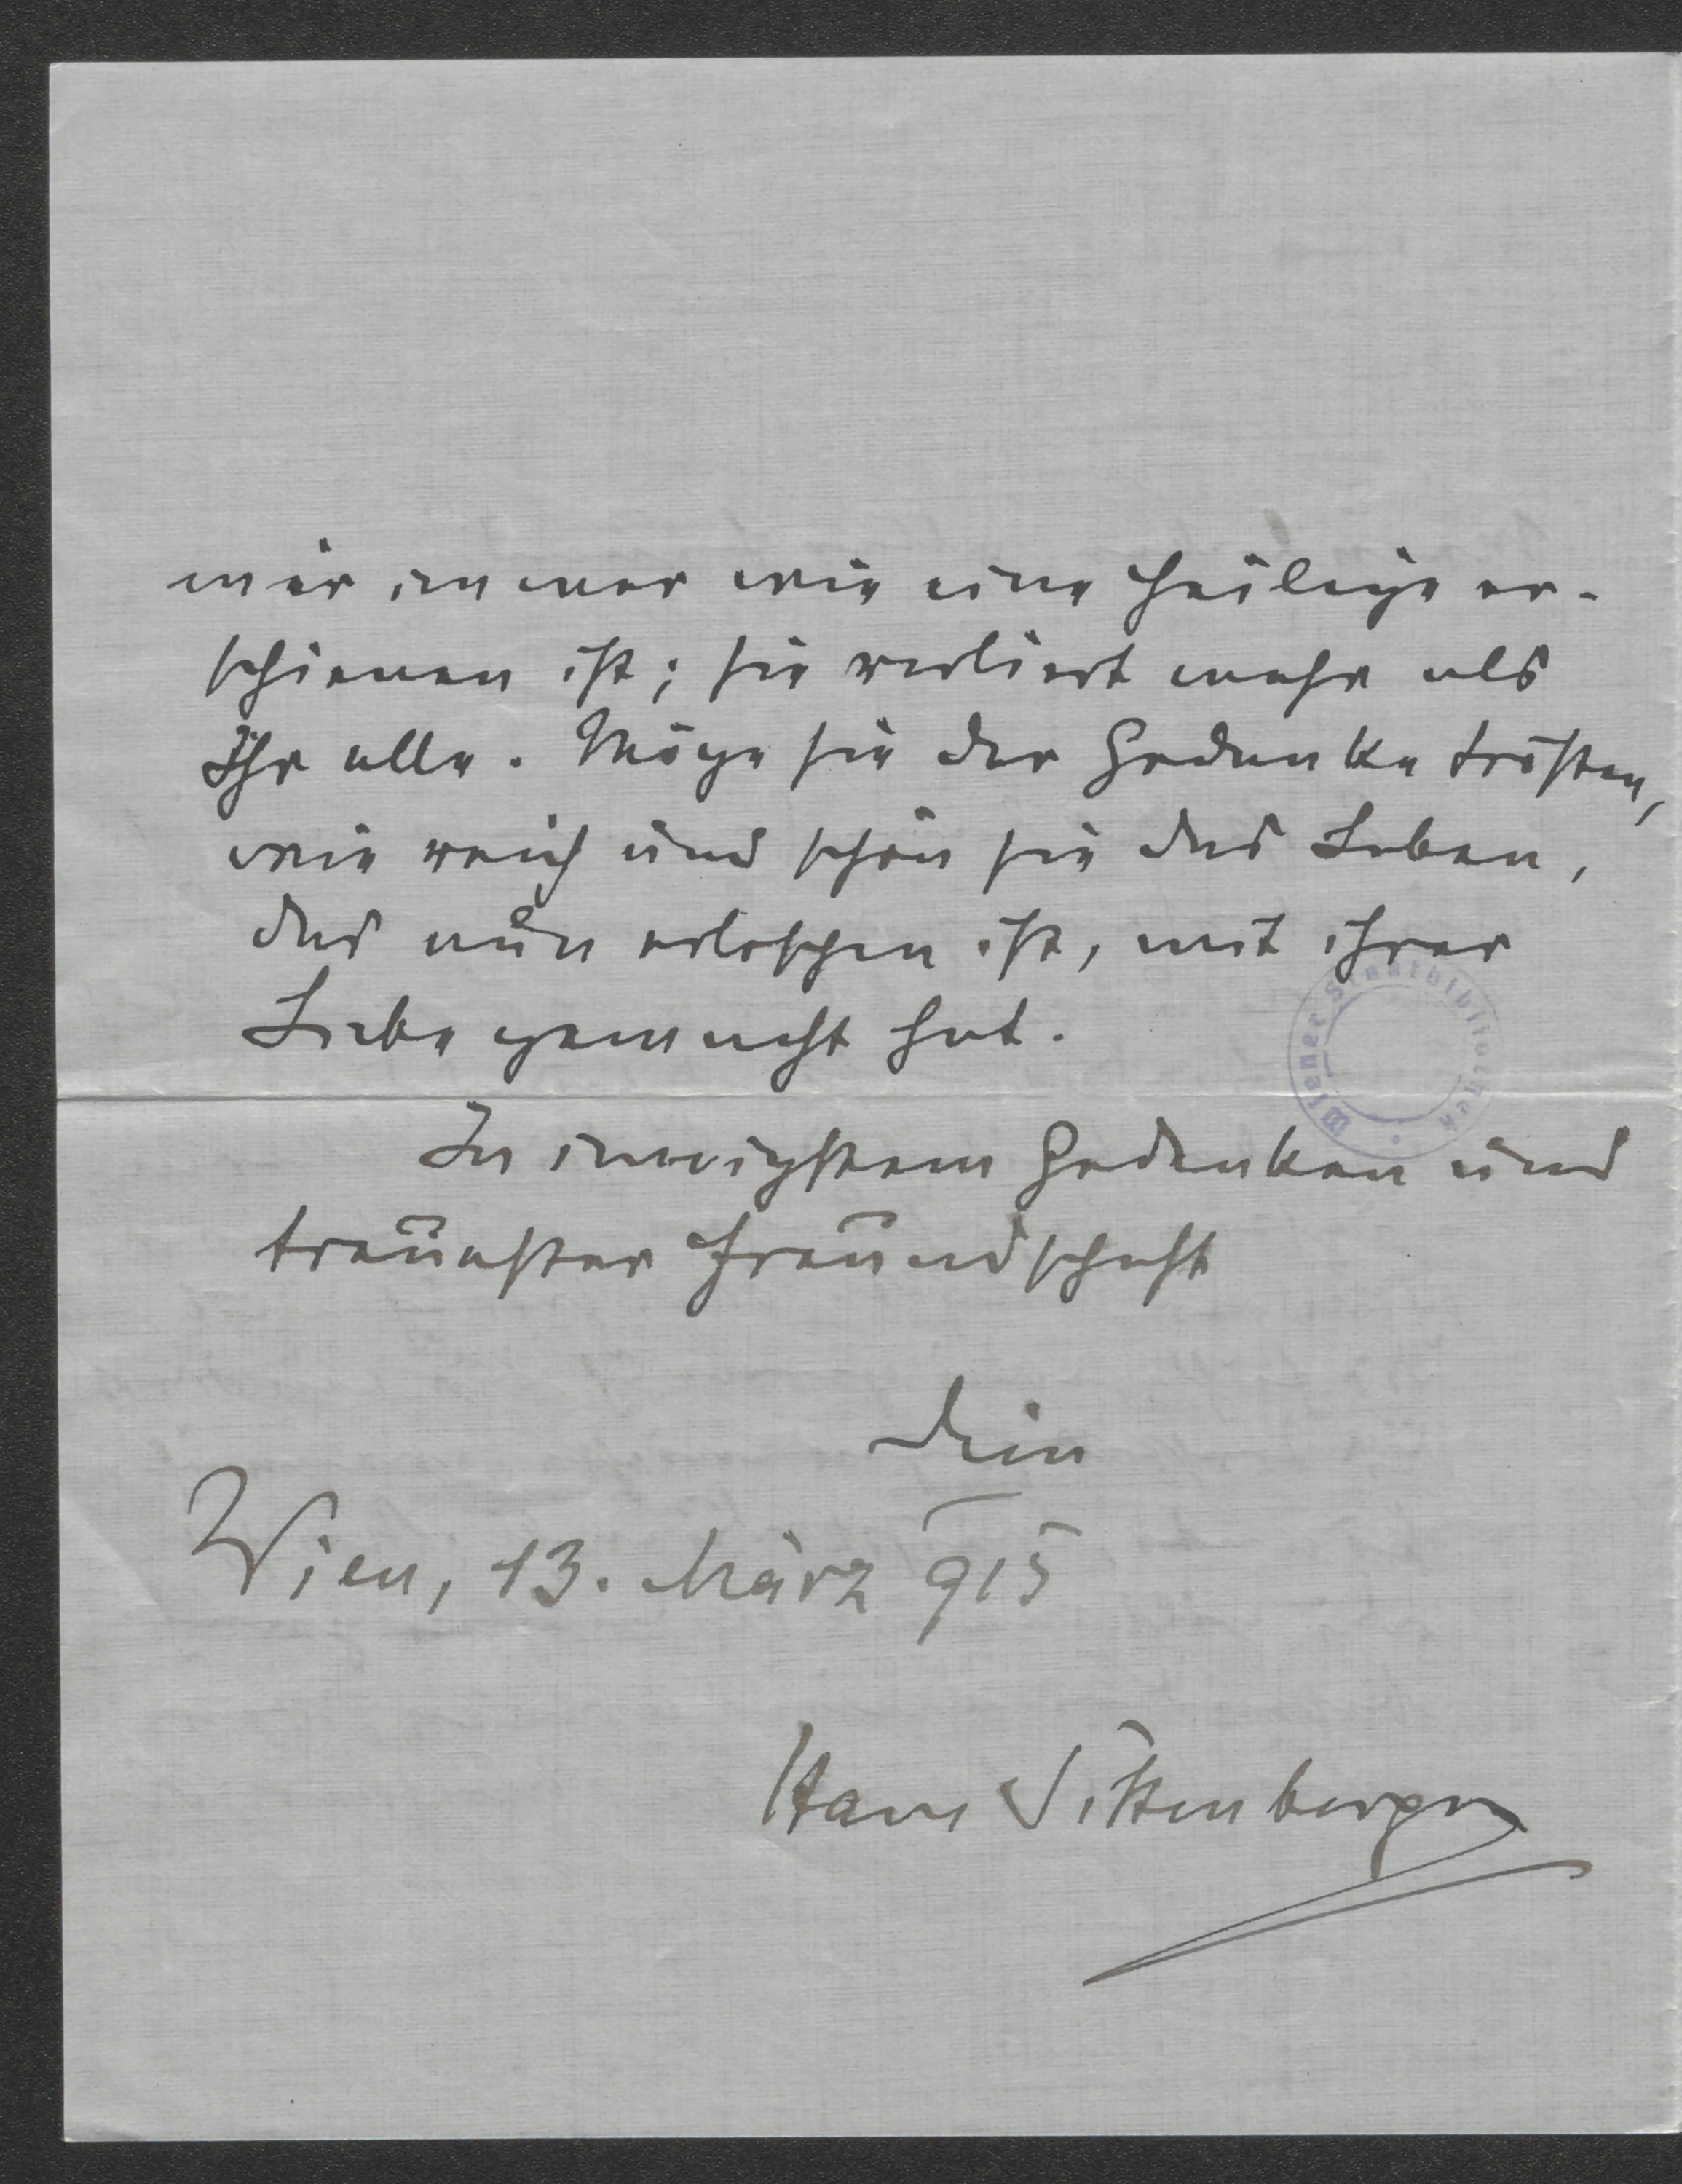 mir immer wie eine Heilige er-
schienen ist; sie verliert mehr als
Ihr alle. Möge sie der Gedanke trösten,
wie reich und schön sie das Leben,
das nun erloschen ist, mit ihrer
Liebe gemacht hat.
Wiener Stadtbibliothek
In innigstem Gedenken und
treuester Freundschaft
Dein
Wien, 13. März 915
Hans Sittenberger